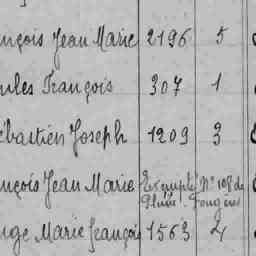 nçois Jean Marie 2196 5
ules François 307 1
ébastien Joseph 1209 3
nçois Jean Marie Exempté N° 108 de
Fougères
nge Marie François 1563 4